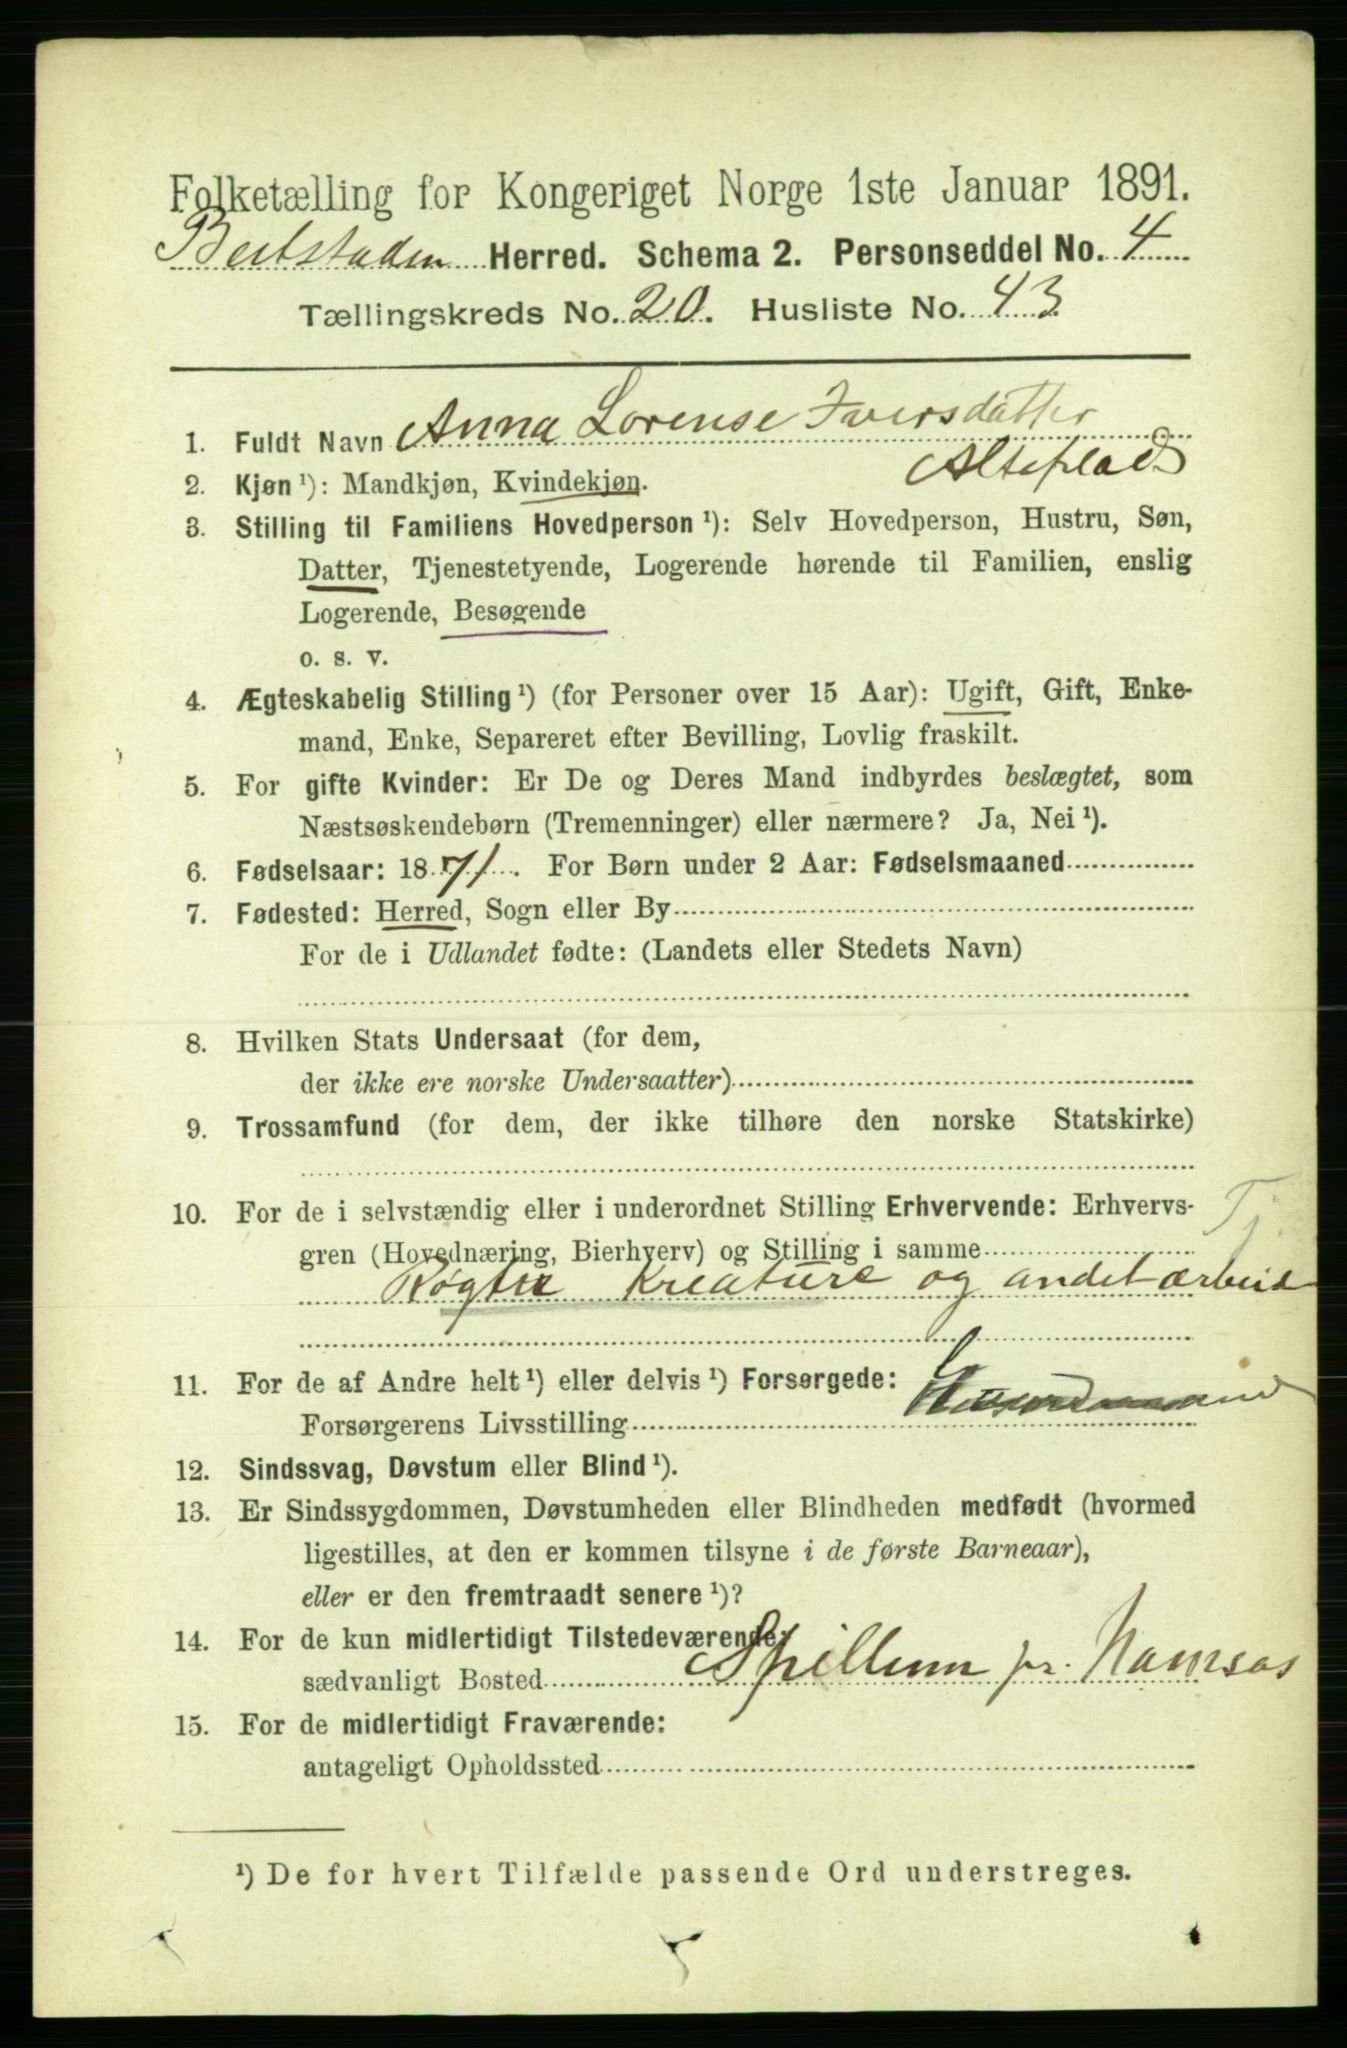 Folketælling for Kongeriget Norge 1ste Januar 1891.
Beitstaden Herred. Schema 2. Personseddel No. 4
Tællingskreds No. 20. Husliste No. 43
1. Fuldt Navn Anna Lorense Iversdatter
2. Kjøn ¹): Mandkjøn, Kvindekjøn.
3. Stilling til Familiens Hovedperson ¹): Selv Hovedperson, Hustru, Søn,
Datter, Tjenestetyende, Logerende hørende til Familien, enslig
Logerende, Besøgende
o. s. v.
4. Ægteskabelig Stilling ¹) (for Personer over 15 Aar): Ugift, Gift, Enke-
mand, Enke, Separeret efter Bevilling, Lovlig fraskilt.
5. For gifte Kvinder: Er De og Deres Mand indbyrdes beslægtet, som
Næstsøskendebørn (Tremenninger) eller nærmere? Ja, Nei ¹).
6. Fødselsaar: 1871. For Børn under 2 Aar: Fødselsmaaned
7. Fødested: Herred, Sogn eller By
For de i Udlandet fødte: (Landets eller Stedets Navn)
8. Hvilken Stats Undersaat (for dem,
der ikke ere norske Undersaatter)
9. Trossamfund (for dem, der ikke tilhøre den norske Statskirke)
10. For de i selvstændig eller i underordnet Stilling Erhvervende: Erhvervs- Tj.
gren (Hovednæring, Bierhverv) og Stilling i samme
Røgter Kreature og andet arbeid
11. For de af Andre helt ¹) eller delvis ¹) Forsørgede:
Forsørgerens Livsstilling
12. Sindssvag, Døvstum eller Blind ¹).
13. Er Sindssygdommen, Døvstumheden eller Blindheden medfødt (hvormed
ligestilles, at den er kommen tilsyne i de første Barneaar),
eller er den fremtraadt senere ¹)?
14. For de kun midlertidigt Tilstedeværende:
sædvanligt Bosted Spillum pr. Namsos
15. For de midlertidigt Fraværende:
antageligt Opholdssted
¹) De for hvert Tilfælde passende Ord understreges.